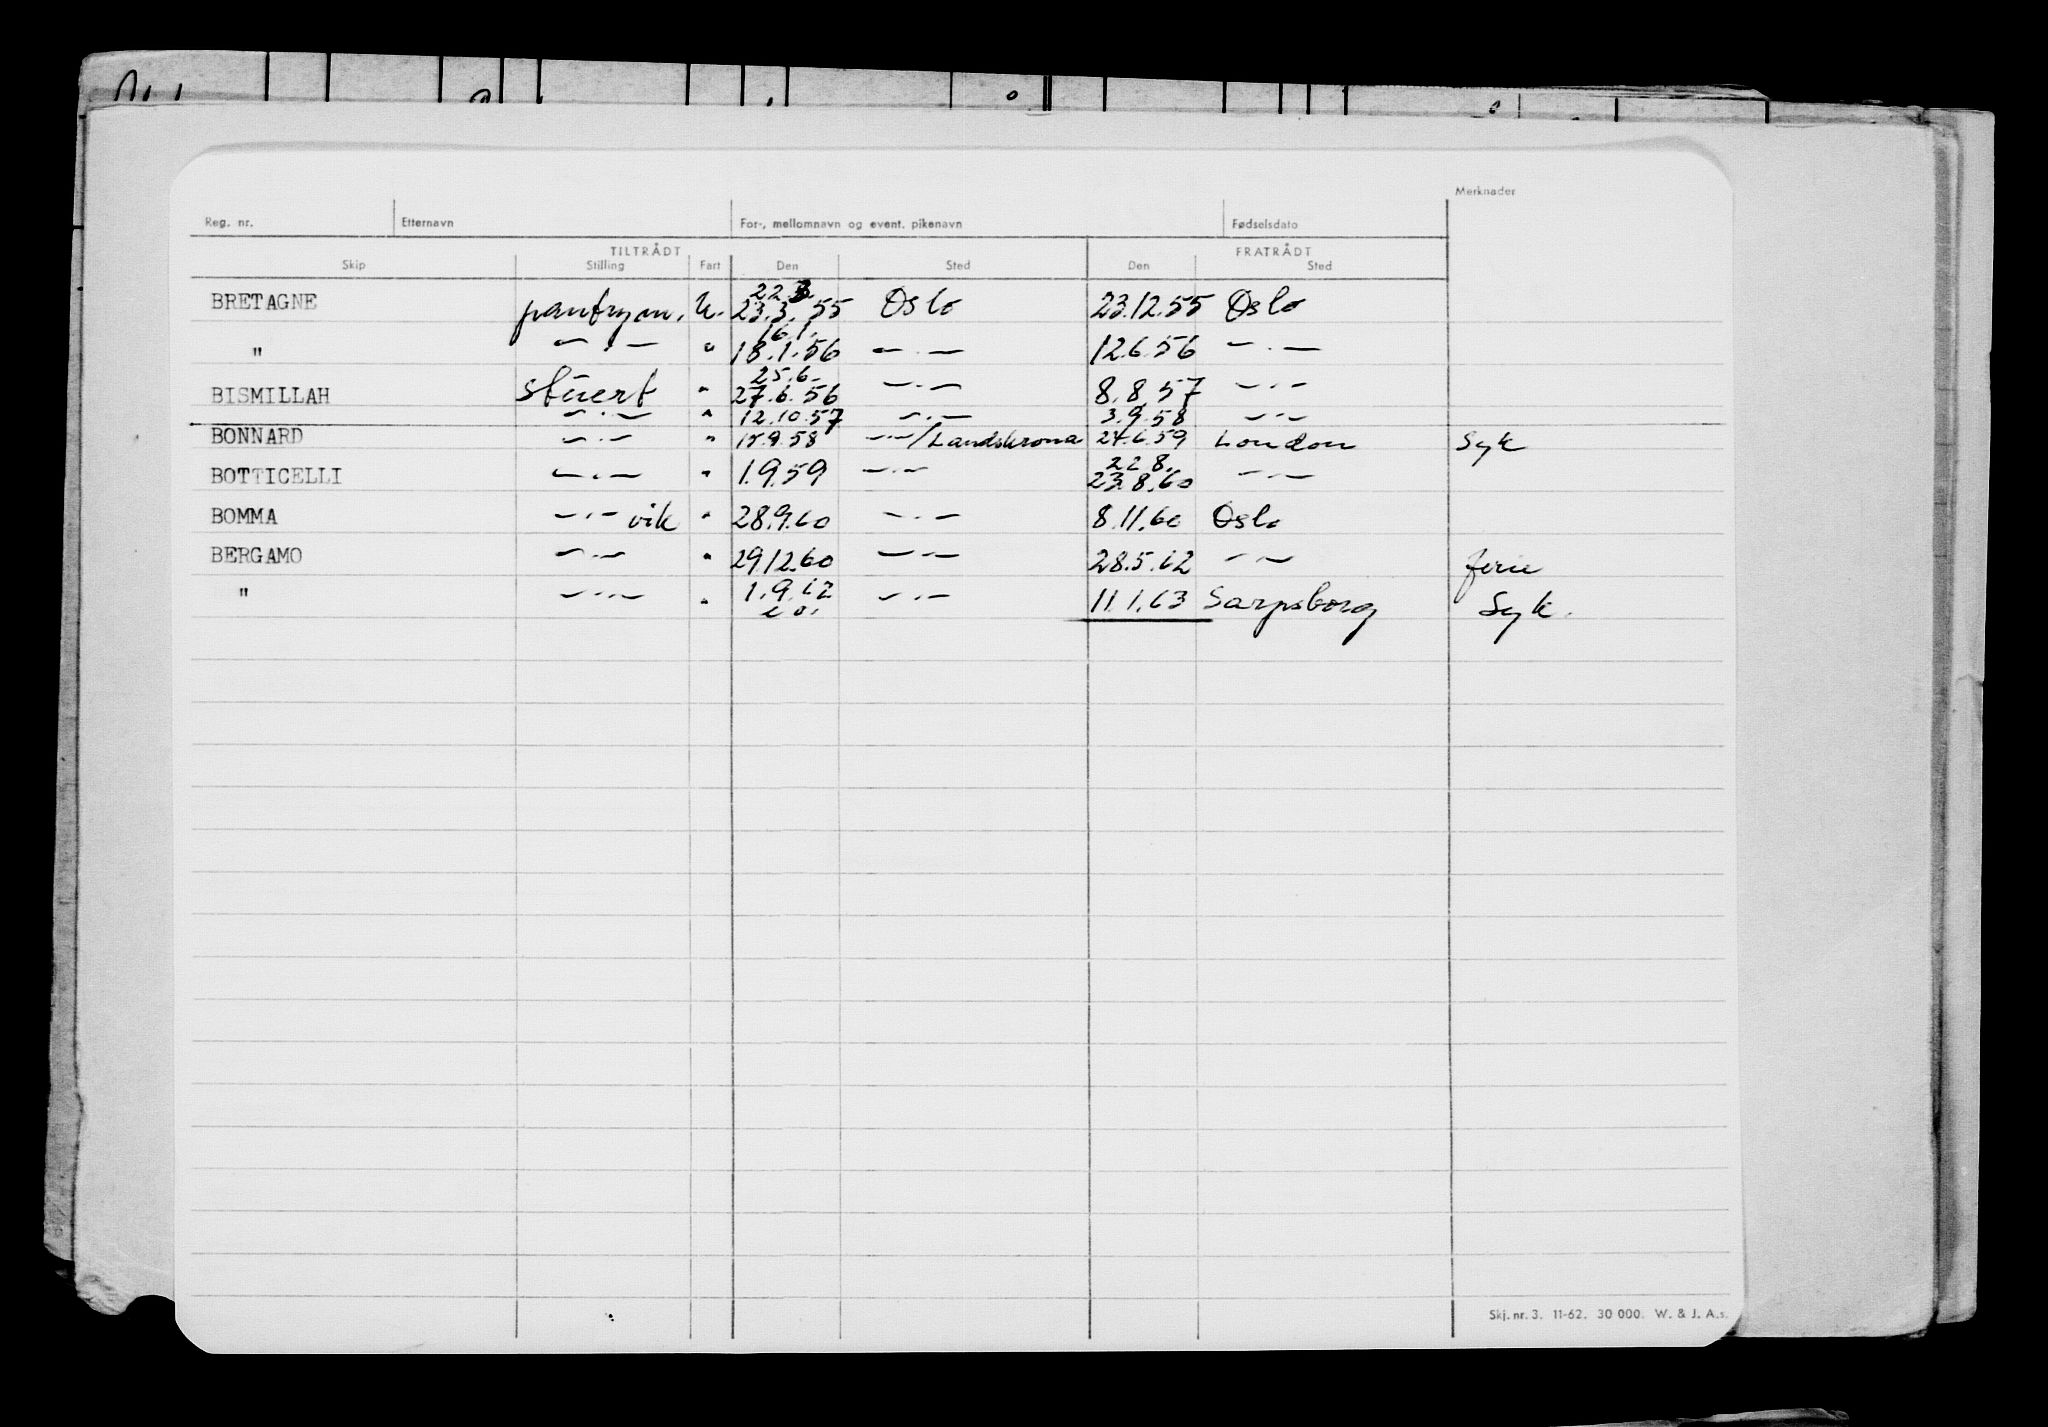 Merknader
Reg. nr. Etternavn For-, mellomnavn og event. pikenavn Fødselsdato
TILTRÅDT FRATRÅDT
Skip Stilling Fart Den Sted Den Sted
22.3.
BRETAGNE pantrym. U. 23.3.55 Oslo 23.12.55 Oslo
16.1.
" — · — " 18.1.56 — · — 12.6.56 — · —
25.6.
BISMILLAH stuert " 27.6.56 — · — 8.8.57 — · —
— · — " 12.10.57 — · — 3.9.58 — · —
BONNARD — · — " .9.58 — · — / Landskrona 24.6.59 London Syk
22.8.
BOTTICELLI — · — " 1.9.59 — · — 23.8.60 — · —
BOMMA — · — vik " 28.9.60 — · — 8.11.60 Oslo
BERGAMO — · — " 29.12.60 — · — 28.5.62 — · — ferie
" — · — " 1.9.62 — · — 11.1.63 Sarpsborg Syk.
Skj. nr. 3. 11-62. 30 000. W. & J. A.s.